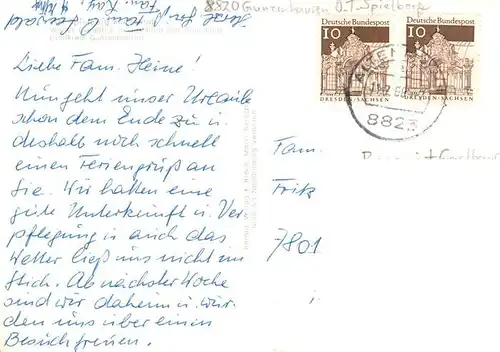 8820 Gunzenhausen O.T. Spielberg
Herzl. Grüße Fam.
Liebe Fam. Heine!
Nun geht unser Urlaub
schon dem Ende zu u.
deshalb noch schnell
einen Feriengruß an
Sie. Wir hatten eine
gute Unterkunft u. Ver
pflegung u. auch das
Wetter ließ uns nicht im
Stich. Ab nächster Woche
sind wir daheim u. wür
den uns über einen
Besuch freuen.
Deutsche Bundespost
10
DRESDEN/SACHSEN
Deutsche Bundespost
10
DRESDEN/SACHSEN
8823
Fam.
Fritz
7801